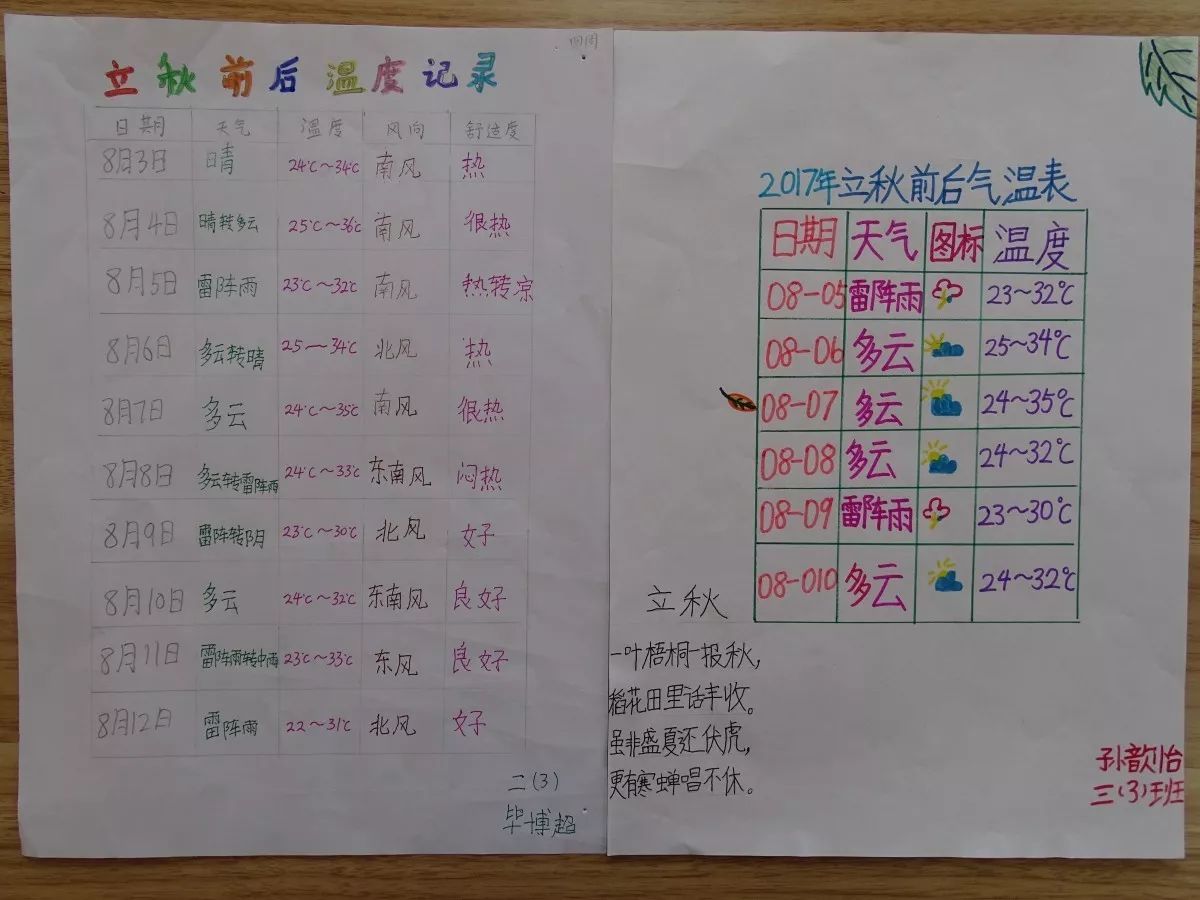 立秋前后温度记录
日期 天气 温度 风向 舒适度
8月3日 晴 24℃~34℃ 南风 热
8月4日 晴转多云 25℃~36℃ 南风 很热
8月5日 雷阵雨 23℃~32℃ 南风 热转凉
8月6日 多云转晴 25~34℃ 北风 热
8月7日 多云 24℃~35℃ 南风 很热
8月8日 多云转雷阵雨 24℃~33℃ 东南风 闷热
8月9日 雷阵转阴 23℃~30℃ 北风 好
8月10日 多云 24℃~32℃ 东南风 良好
8月11日 雷阵雨转中雨 23℃~33℃ 东风 良好
8月12日 雷阵雨 22~31℃ 北风 好
二(3)
毕博超
2017年立秋前后气温表
日期 天气 图标 温度
08-05 雷阵雨 23~32℃
08-06 多云 25~34℃
08-07 多云 24~35℃
08-08 多云 24~32℃
08-09 雷阵雨 23~30℃
08-010 多云 24~32℃
立秋
一叶梧桐一报秋,
稻花田里话丰收。
虽非盛夏还伏虎,
更有寒蝉唱不休。
孙歆怡
三(3)班